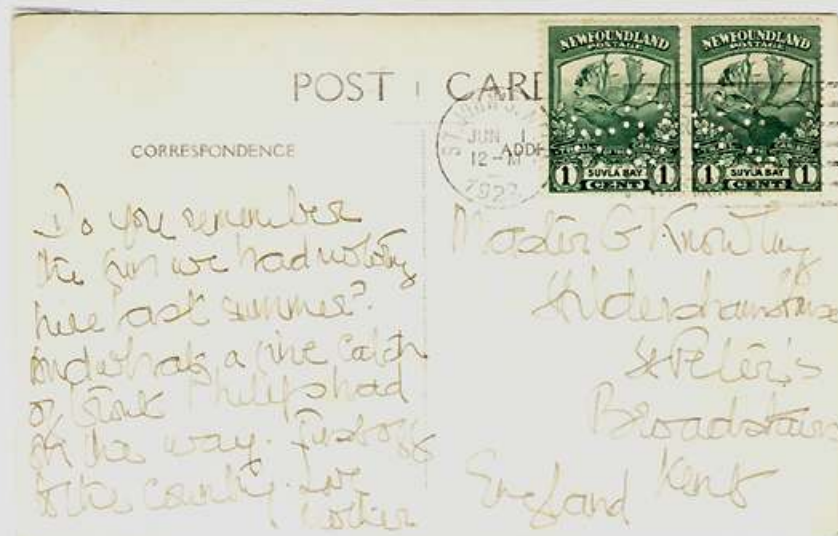 POST CARD
CORRESPONDENCE
ADDR
NEWFOUNDLAND
POSTAGE
1 SUVLA BAY 1
CENT
NEWFOUNDLAND
POSTAGE
1 SUVLA BAY 1
CENT
ST. JOHN'S, N
JUN 1
12-M
192
Do you remember
the fun we had
here last summer?
and what a fine catch
of trout Philip had
on the way. Just off
to the country. Love
Mother
Master G Knowling
Hildersham House
St Peter's
Broadstairs
England Kent